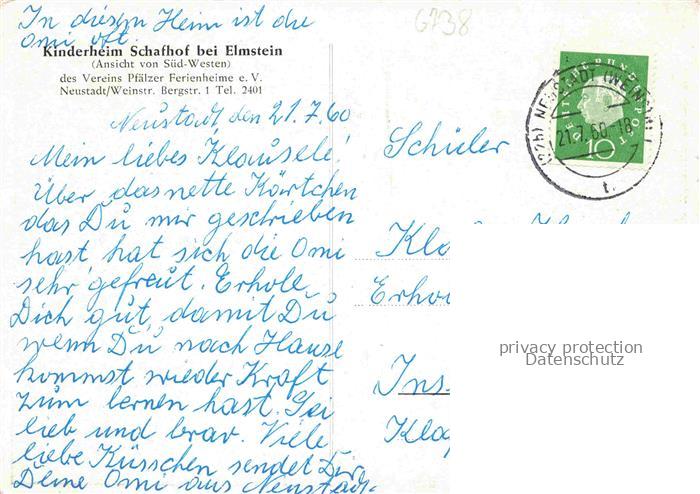 In diesem Heim ist die
Omi oft.
6738
Kinderheim Schafhof bei Elmstein
(Ansicht von Süd-Westen)
des Vereins Pfälzer Ferienheime e. V.
Neustadt/Weinstr. Bergstr. 1 Tel. 2401
Neustadt, den 21.7.60
Mein liebes Klausele!
Über das nette Kärtchen
das Du mir geschrieben
hast hat sich die Omi
sehr gefreut. Erhole
Dich gut, damit Du
wenn Du nach Hause
kommst wieder Kraft
zum lernen hast. Sei
lieb und brav. Viele
liebe Küsschen sendet Dir
Deine Omi aus Neustadt.
DEUTSCHE BUNDESPOST
10
NEUSTADT (WEINSTR)
21.7.60-18
t.
Schüler
Kla
Erho
Ins.
Kla
privacy protection
Datenschutz